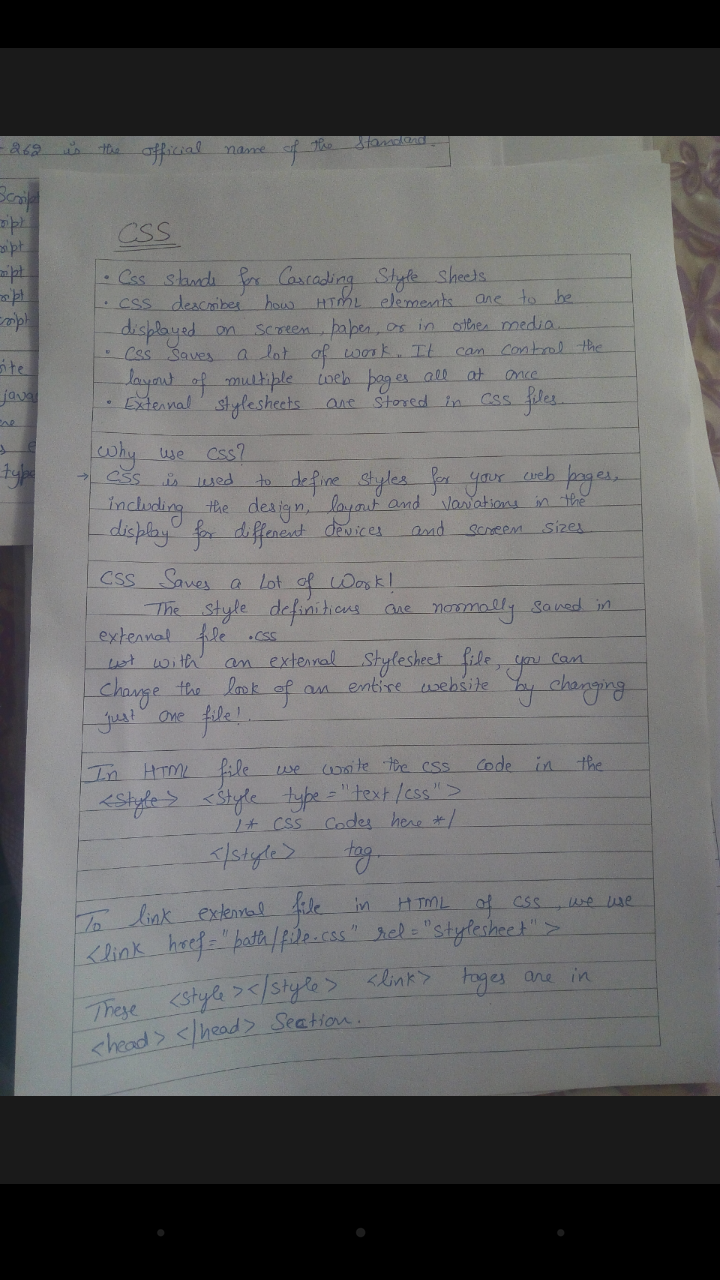 -262 is the official name of the standard.
Script
ript
ipt
ript
ript
cript
ite
java
type
CSS
• Css stands for Cascading Style Sheets
• CSS describes how HTML elements are to be
displayed on screen, paper, or in other media.
• Css saves a lot of work. It can control the
layout of multiple web pages all at once
• External stylesheets are stored in CSS files.
Why use CSS?
→ CSS is used to define styles for your web pages,
including the design, layout and variations in the
display for different devices and screen sizes
CSS Saves a Lot of Work!
The style definitions are normally saved in
external file .css
with an external stylesheet file, you can
change the look of an entire website by changing
just one file!
In HTML file we write the css code in the
<style> <style type="text/css">
/* CSS Codes here */
</style> tag.
To link external file in HTML of css, we use
<link href="path/file.css" rel="stylesheet">
These <style></style> <link> tages are in
<head> </head> Section.